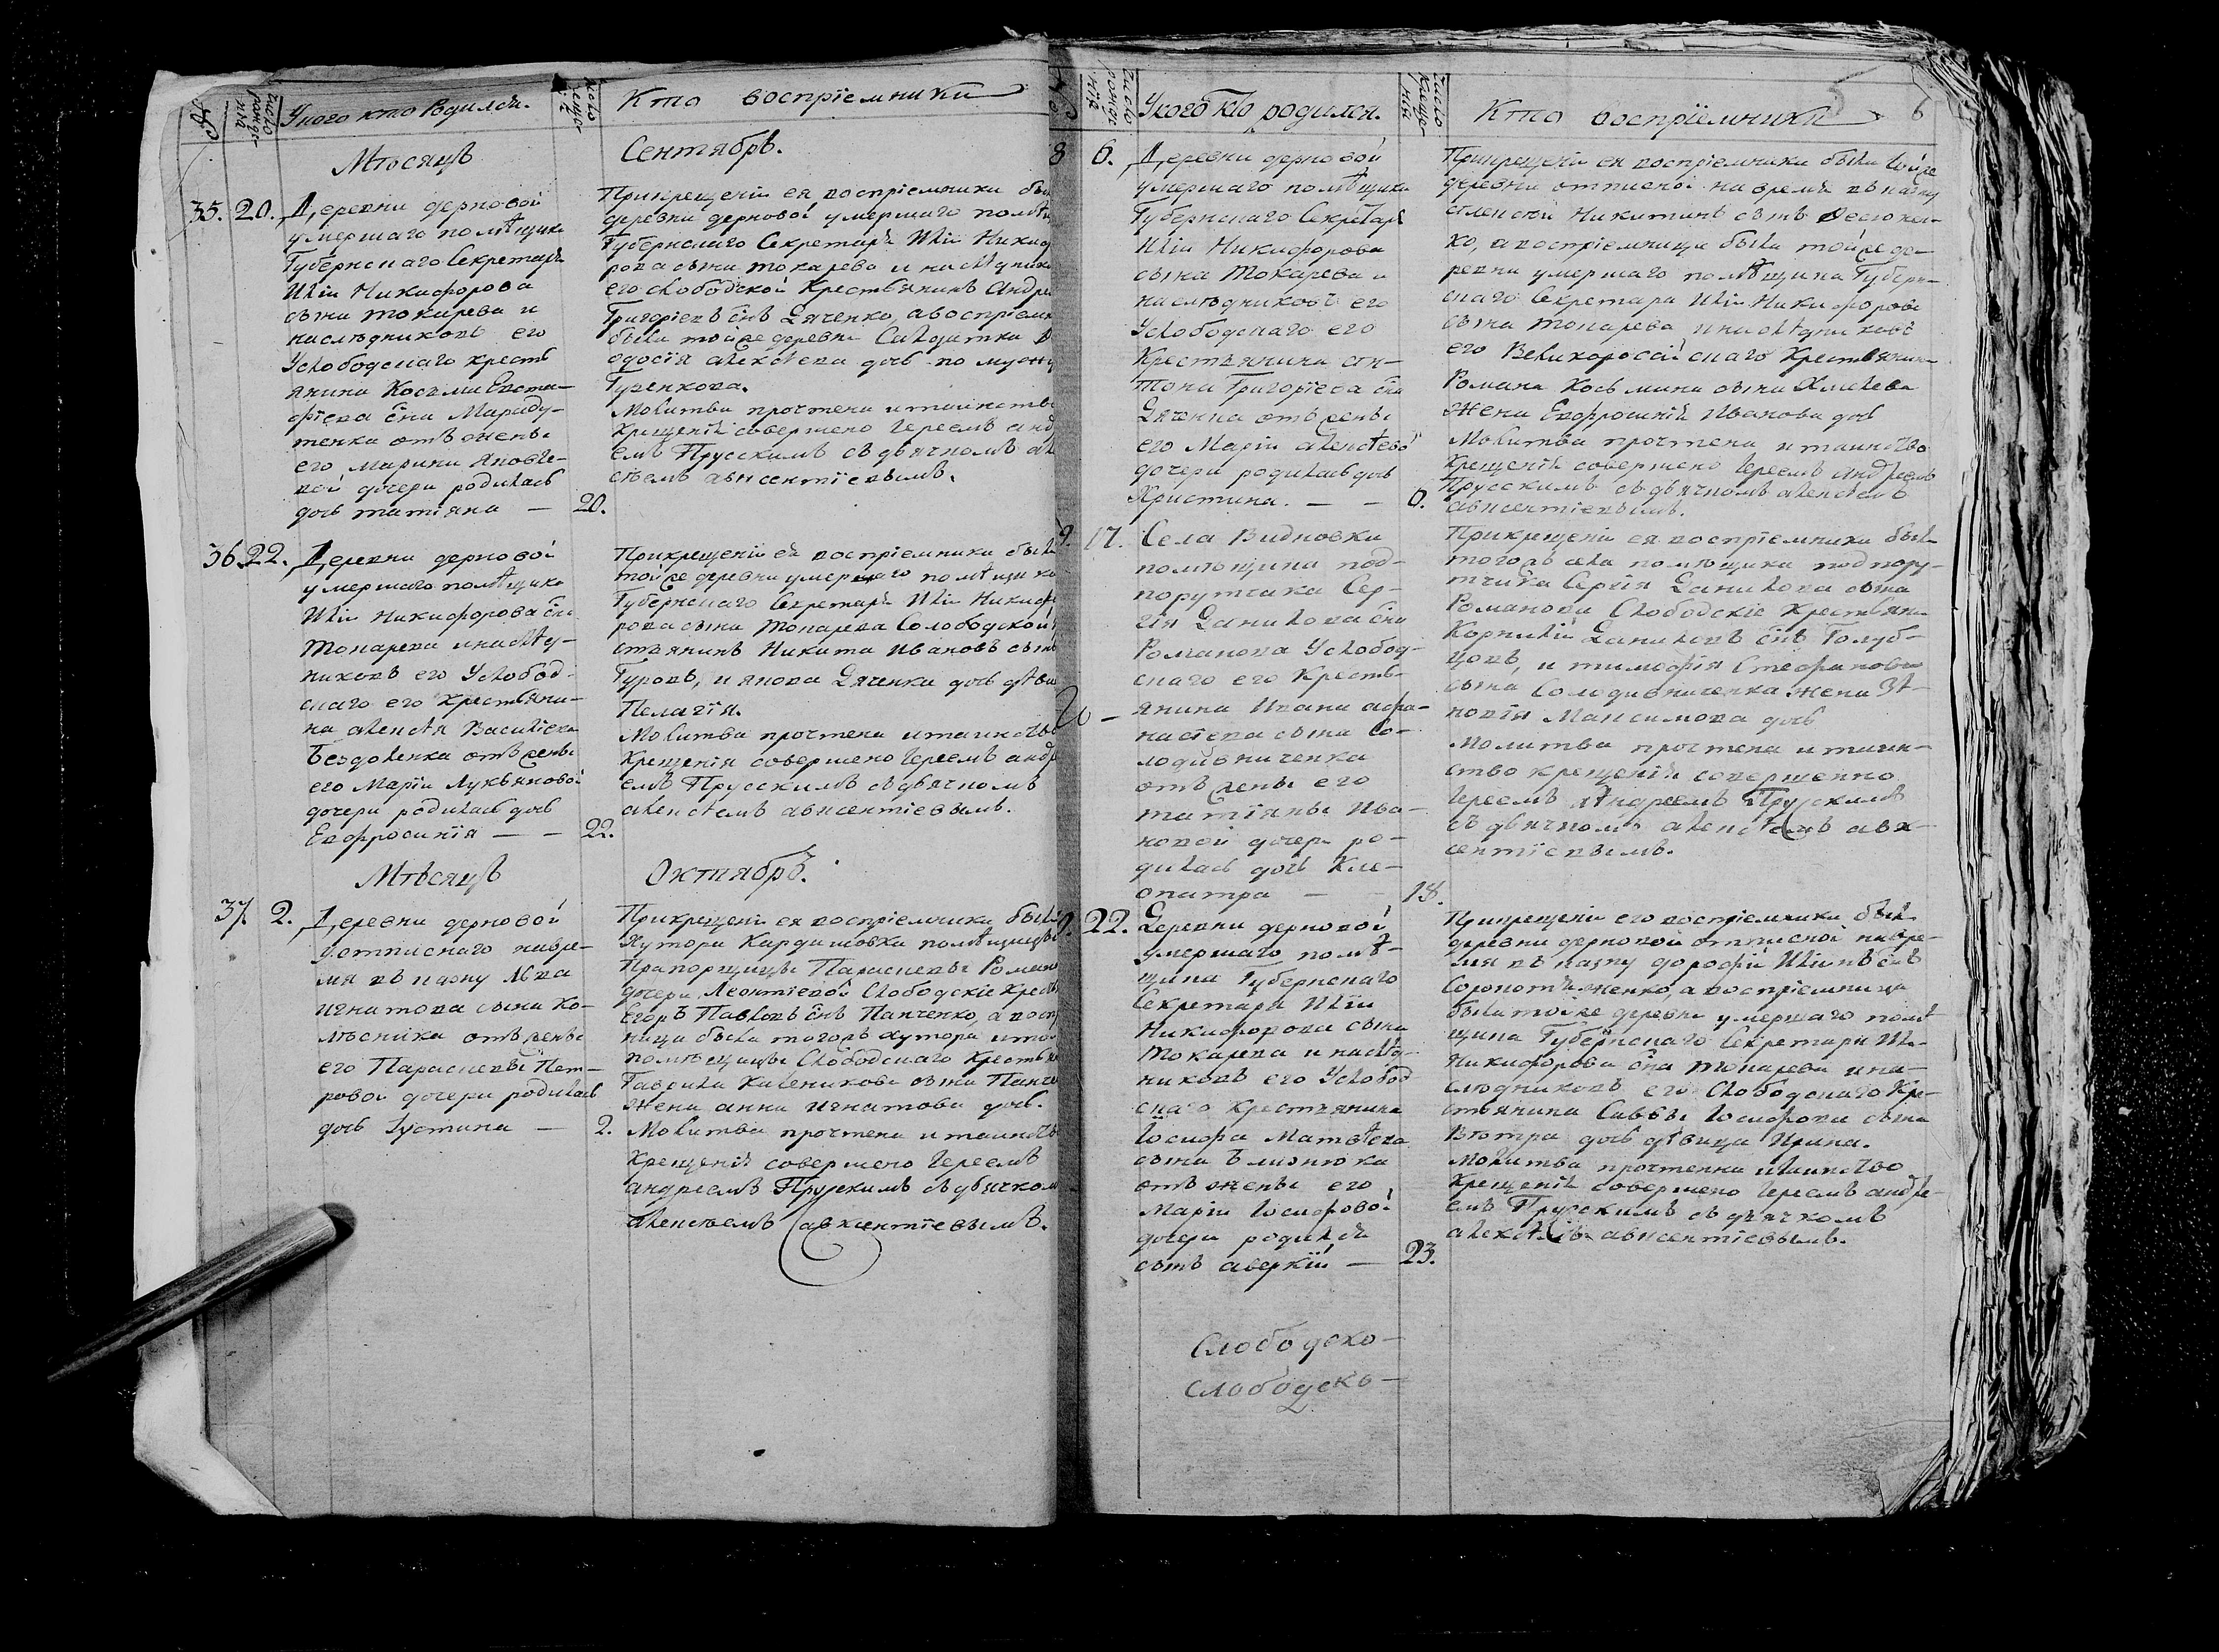 №
Число рожденія
У кого кто Родился.
Число креще-
Кто воспріемники
Мѣсяцъ
Сентябрь.
35. 20. Деревни дерновой
умершаго помѣщика
Губернскаго Секретаря
Иліи Никифорова
сына токарева и
наслѣдниковъ его
Услободскаго крестъ
янина Косьмы Евста-
фіева сна Мариду-
тенка отъ жены
его марины яковле-
вой дочери родилась
дочь татіяна — 20.
Прикрещеніи ея воспріемники бы
деревни дерновой умершаго помѣщ
Губернскаго Секретаря Иліи Никиф
рова сына токарева и наслѣднико
его слободской Крестьянинъ Андре
Григоріевъ снъ Дяченко, авоспріем
была тойже деревни Салдатка
одосія алексѣева дочь по мужу
Гуренкова.
Молитва прочтена итаинств
крещенія совершено Іереемъ анд
емъ Прусскимъ съдьячкомъ але
сѣемъ авксентіевымъ.
36. 22. Деревни дерновой
умершаго помѣщика
Иліи Никифорова сна
Токарева инаслѣд-
никовъ его Услобод-
скаго его крестьяни-
на алексѣя Василіева
Бездоленка отъ жены
его Маріи Лукьяновой
дочери родилась дочь
Евфросинія — — 22.
Прикрещеніи ея воспріемники были
тойже деревни умершаго помѣщика
Губернскаго Секретаря Иліи Никиф
рова сына Токарева Солободской
стьянинъ Никита Ивановъ сынъ
Гуровъ, и якова Дяченка дочь дѣви
Пелагія.
Молитва прочтена итаинств
Крещенія совершено Іереемъ анд
емъ Прусскимъ съдьячкомъ
алексѣемъ авксентіевымъ.
Мѣсяцъ
Октябрь.
37. 2. Деревни дерновой
Уотписнаго навре-
мя въ казну Льва
игнатова сына Ко-
лѣсника отъ жены
его Параскевы Пет-
ровой дочери родилась
дочь Іустина — 2.
Прикрещеніи ея воспріемники были
Хутора Кардашовки помѣщицы
Прапорщицы Параскевы Роман
дочери Леонтіевой Слободскіе Крест
Егоръ Павловъ снъ Панченко, а восп
ница была тогожъ хутора ито
помѣщицы Слободскаго Крестья
Гаврила сына Панче
жена анна игнатова дочь.
Молитва прочтена итаинств
Крещенія совершено Іереемъ
андреемъ Прусскимъ съдьячком
алексѣемъ авксентіевымъ.
№
Число рожде нія
Укого кто родился.
Число Креще нія
Кто воспріемники
5
6
8 6. Деревни дерновой
умершаго помѣщика
Губернскаго Секретаря
Иліи Никифорова
сына Токарева и
наслѣдниковъ его
Услободскаго его
Крестьянина ан-
тона Григоріева сна
Дяченка отъ жены
его Маріи алексѣевой
дочери родилась дочь
Христина. — — 6.
Прикрещеніи ея воспріемники были тойже
деревни отписной на время въ казну
Никитинъ сынъ
ко, авоспріемница была тойже де-
ревни умершаго помѣщика Губерн-
скаго Секретаря Иліи Никифорова
сына токарева инаслѣдниковъ
его Великороссійскаго Крестьянина
Романа Косьмина сына Хмелева
жена Евфросинія Иванова дочь
Молитва прочтена итаинство
Крещенія совершено Іереемъ андреемъ
Прусскимъ съдьячкомъ алексѣемъ
авксентіевымъ.
9. 17. Села Видновки
помѣщика под-
порутчика Сер-
гія Данилова сна
Романова Услобод-
скаго его Кресть-
янина Ивана афа-
насіева сына Со-
лодивниченка
отъ жены его
татіяны Ива-
новой дочери ро-
дилась дочь Кле-
опатра — 18.
20 —
Прикрещеніи ея воспріемники были
тогожъ села помѣщика подпору-
тчика Сергія Данилова сына
Романова Слободскіе Крестьяне
Корнилій Даниловъ снъ Голуб-
цовъ, и тимофія Стефанова
сына Солодивниченка жена Зѣ-
новія Максимова дочь
Молитва прочтена итаин-
ство крещенія совершенно
Іереемъ Андреемъ Прусскимъ
съдьячкомъ алексѣемъ авк-
сентіевымъ.
9. 22. Деревни дерновой
Умершаго помѣ-
щика Губернскаго
Секретаря Иліи
Никифорова сына
Токарева и наслѣд-
никовъ его Услобод
скаго Крестьянина
Іосифа Матвѣева
сына Близнюка
отъ жены его
Маріи Іосифовой
дочери родился
сынъ аверкій — 23.
Прикрещеніи его воспріемники были
деревни дерновой отписной навре-
мя въ казну дорофій Иліинъ снъ
, а воспріемница
была тойже деревни умершаго помѣ
щика Губернскаго Секретаря Иліи
Никифорова сна Токарева ина-
слѣдниковъ его Слободскаго Кре-
стьянина Саввы Іосифова сына
Вѣтра дочь дѣвица Ирина.
Молитва прочтенна итаинство
Крещенія совершено Іереемъ андре-
емъ Прусскимъ съдьячкомъ
алексѣемъ авксентіевымъ.
Слободско—
Слободско—